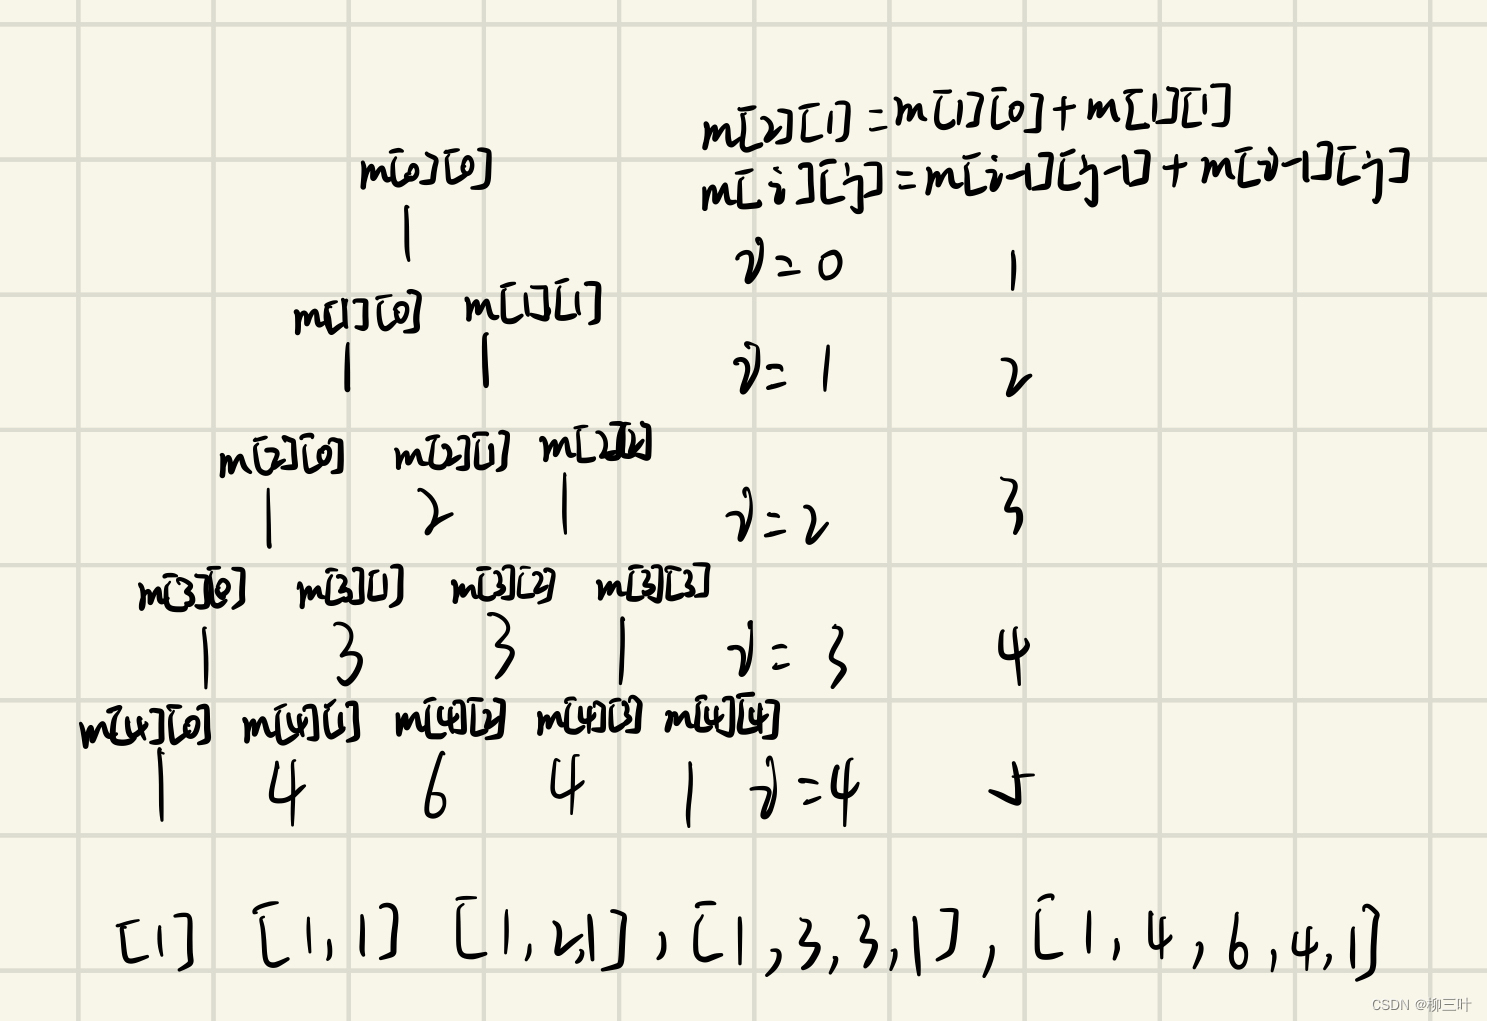 m[2][1] = m[1][0] + m[1][1]
m[i][j] = m[i-1][j-1] + m[i-1][j]
m[0][0]
1 i=0 1
m[1][0] m[1][1]
1 1 i=1 2
m[2][0] m[2][1] m[2][2]
1 2 1 i=2 3
m[3][0] m[3][1] m[3][2] m[3][3]
1 3 3 1 i=3 4
m[4][0] m[4][1] m[4][2] m[4][3] m[4][4]
1 4 6 4 1 i=4 5
[1] [1,1] [1,2,1], [1,3,3,1], [1,4,6,4,1]
CSDN @柳三叶